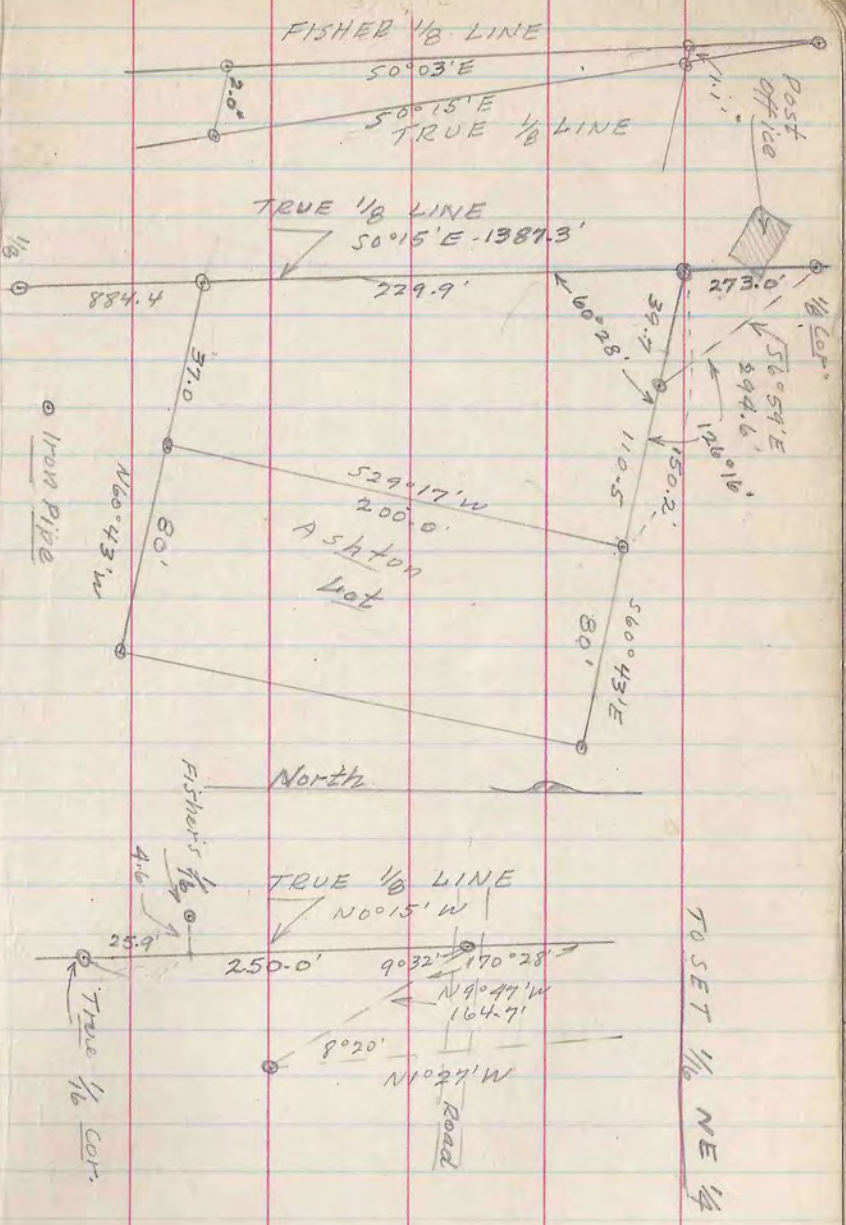 FISHER 1/8 LINE
S0°03'E
2.0'
S0°15'E
TRUE 1/8 LINE
1.1'
Post
office
TRUE 1/8 LINE
S0°15'E-1387.3'
1/8
884.4
229.9'
273.0'
1/8 Cor.
60°28'
39.7
S6°59'E
294.6'
126°16'
150.2'
110.5
37.0
80'
N60°43'W
⊙ Iron Pipe
S29°17'W
200.0'
Ashton
Lot
S60°43'E
80'
North
Fisher's 1/16
4.6
TRUE 1/8 LINE
N0°15'W
25.9'
250.0'
9°32'
170°28'
N9°47'W
164.7'
8°20'
N1°27'W
Road
True 1/16 Cor.
TO SET 1/16 NE 1/4